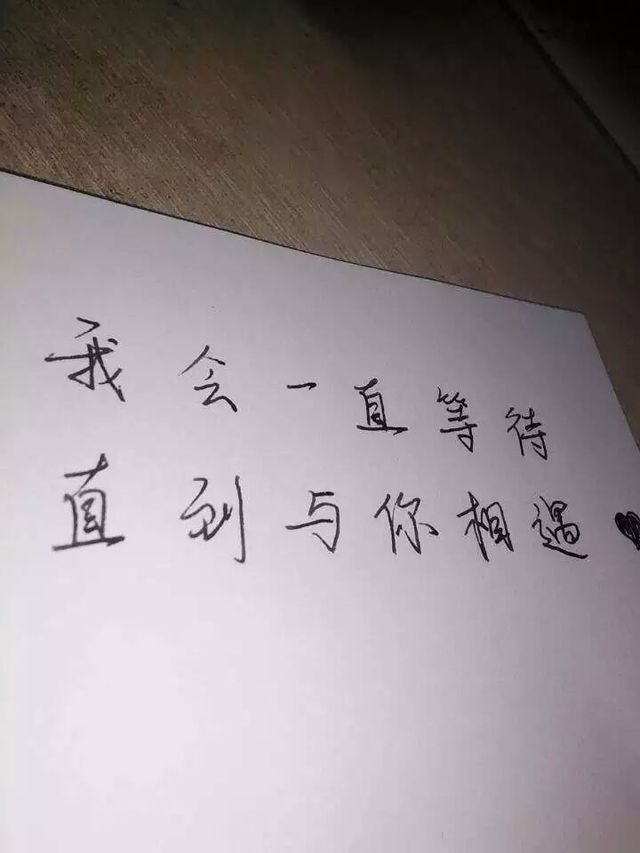 我会一直等待
直到与你相遇♥